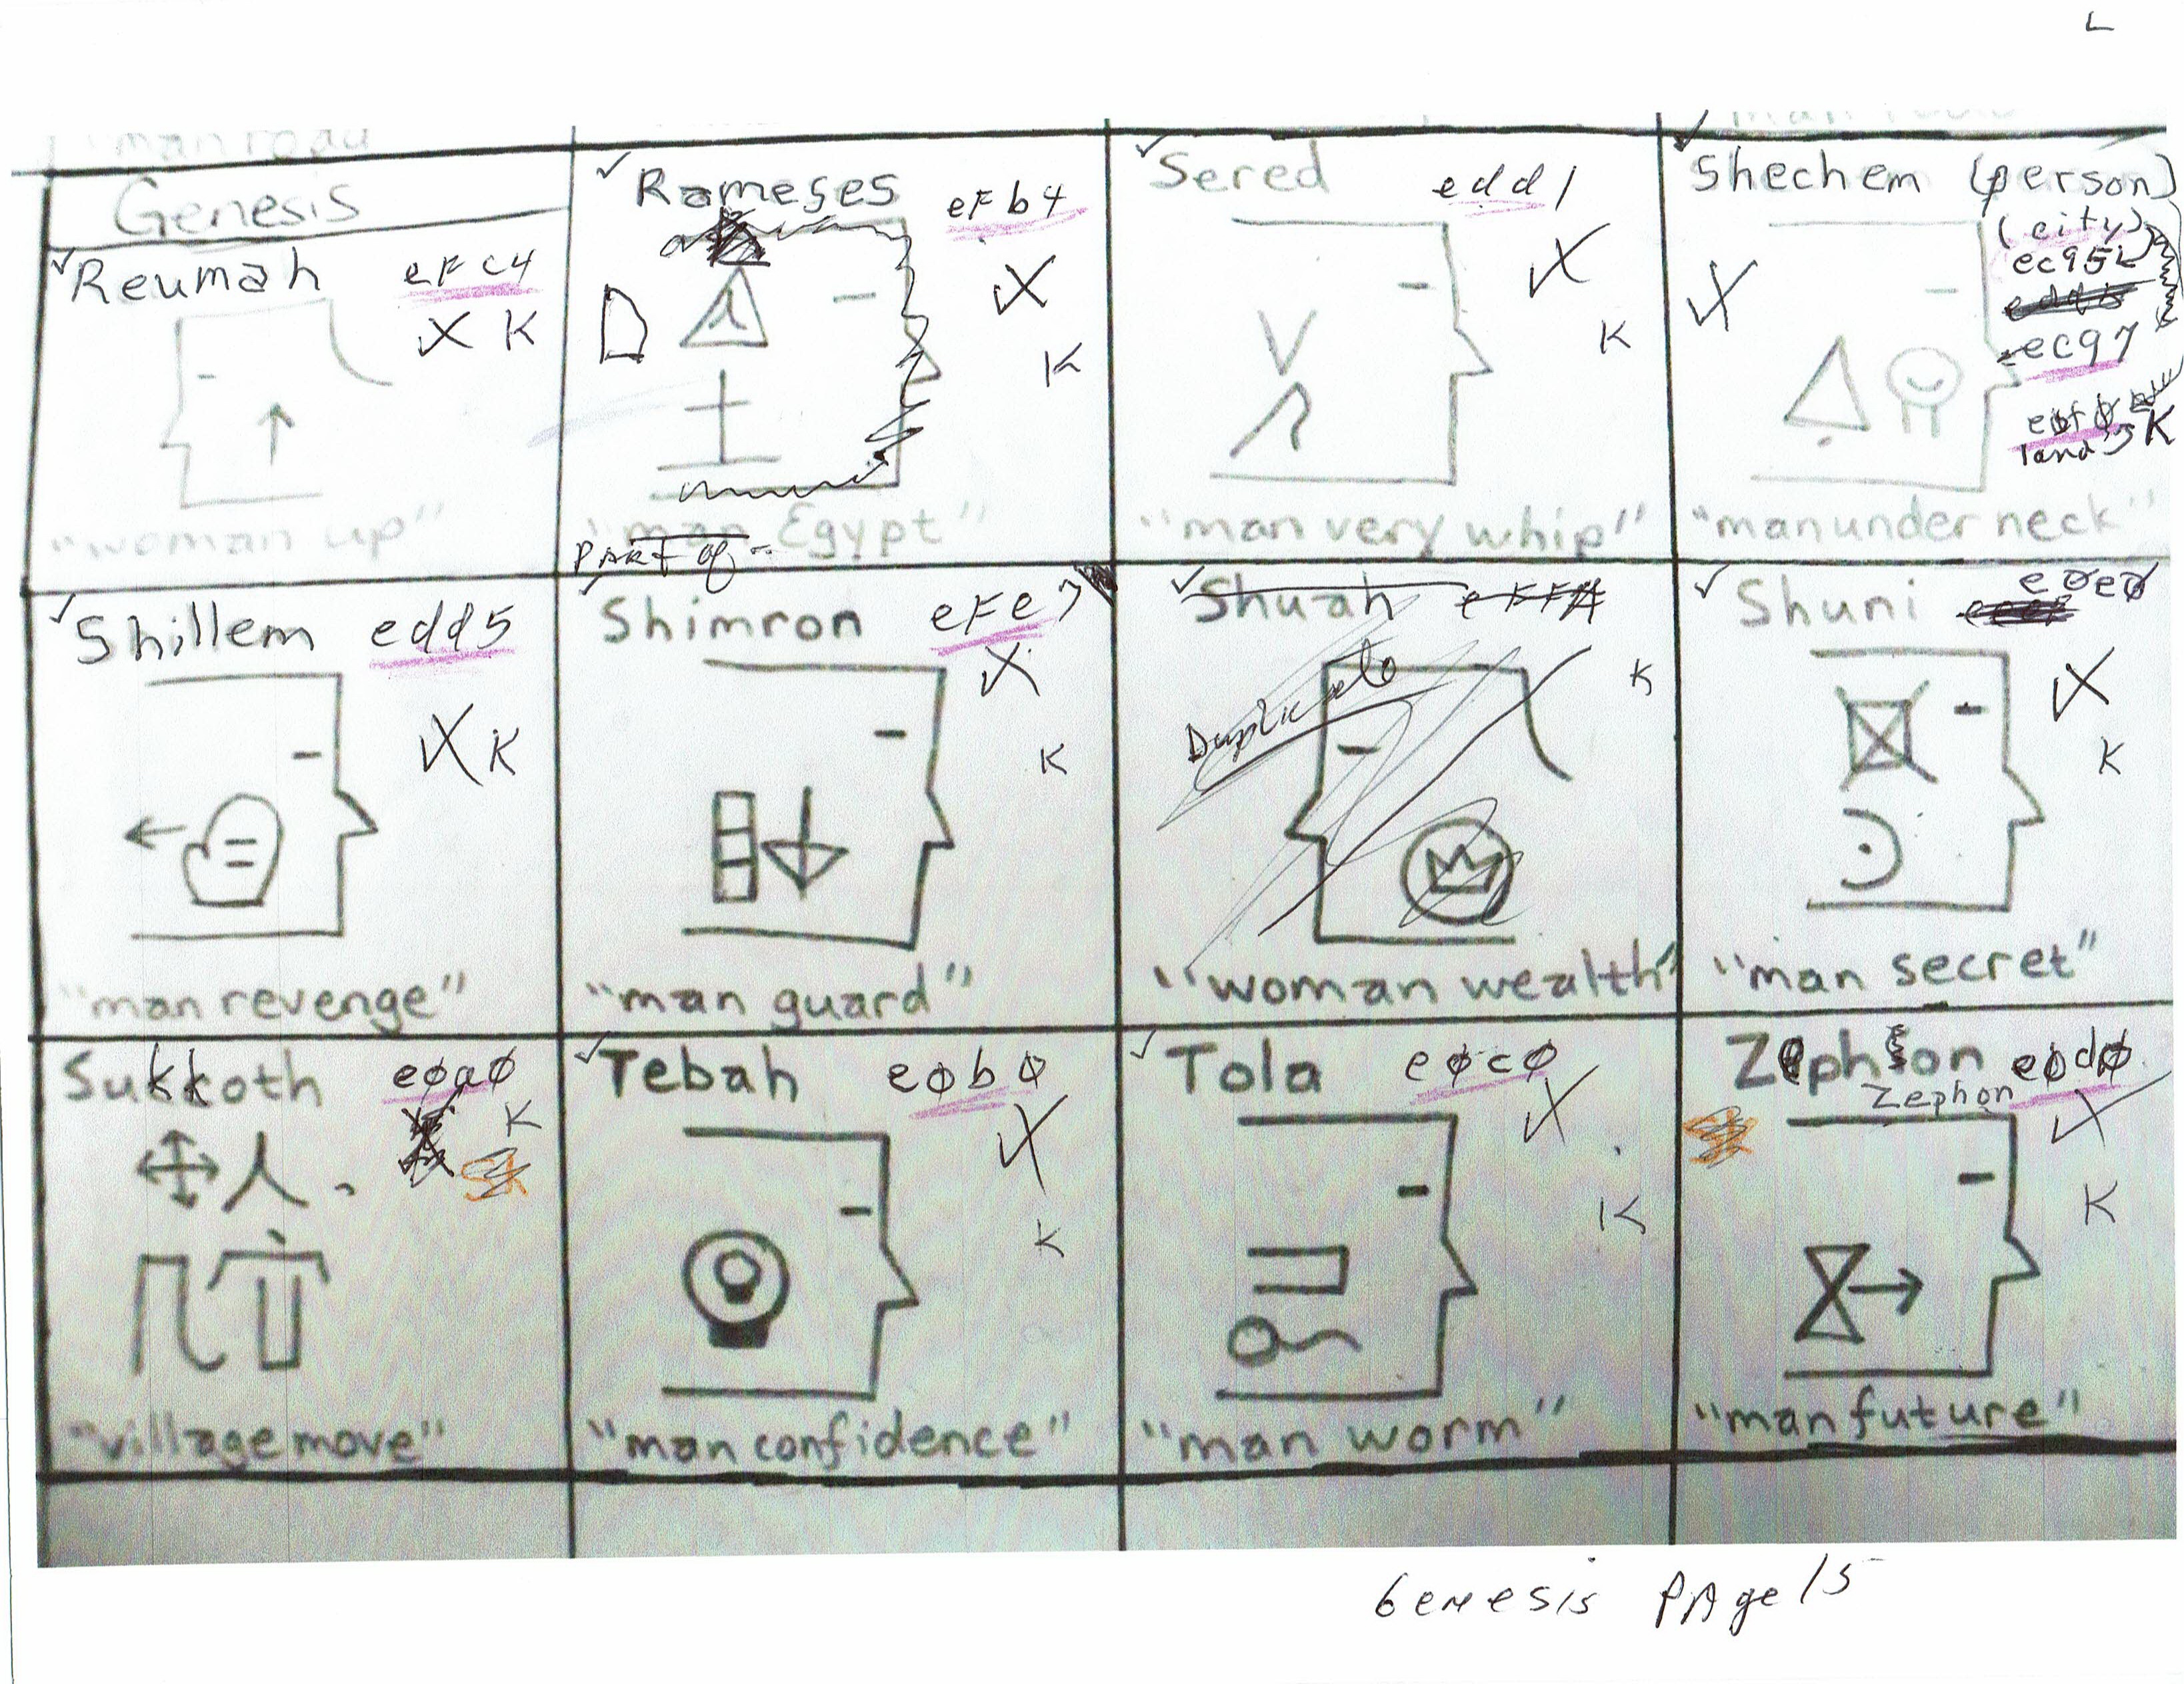 L
Genesis
Reumah eFc4
X K
"woman up"
Rameses eFb4
X
K
"man Egypt"
Part of
Sered edd1
X
K
"man very whip"
Shechem (person)
(city)
ec95
X
ec97
land K
"man under neck"
Shillem edd5
X K
"man revenge"
Shimron eFe7
X
K
"man guard"
Shuah
K
Duplicate
"woman wealth"
Shuni eøeø
X
K
"man secret"
Sukkoth eøaø
K
"village move"
Tebah eøbø
X
K
"man confidence"
Tola eøcø
X
K
"man worm"
Zephon eødø
Zephon
X
K
"man future"
Genesis PAge 15